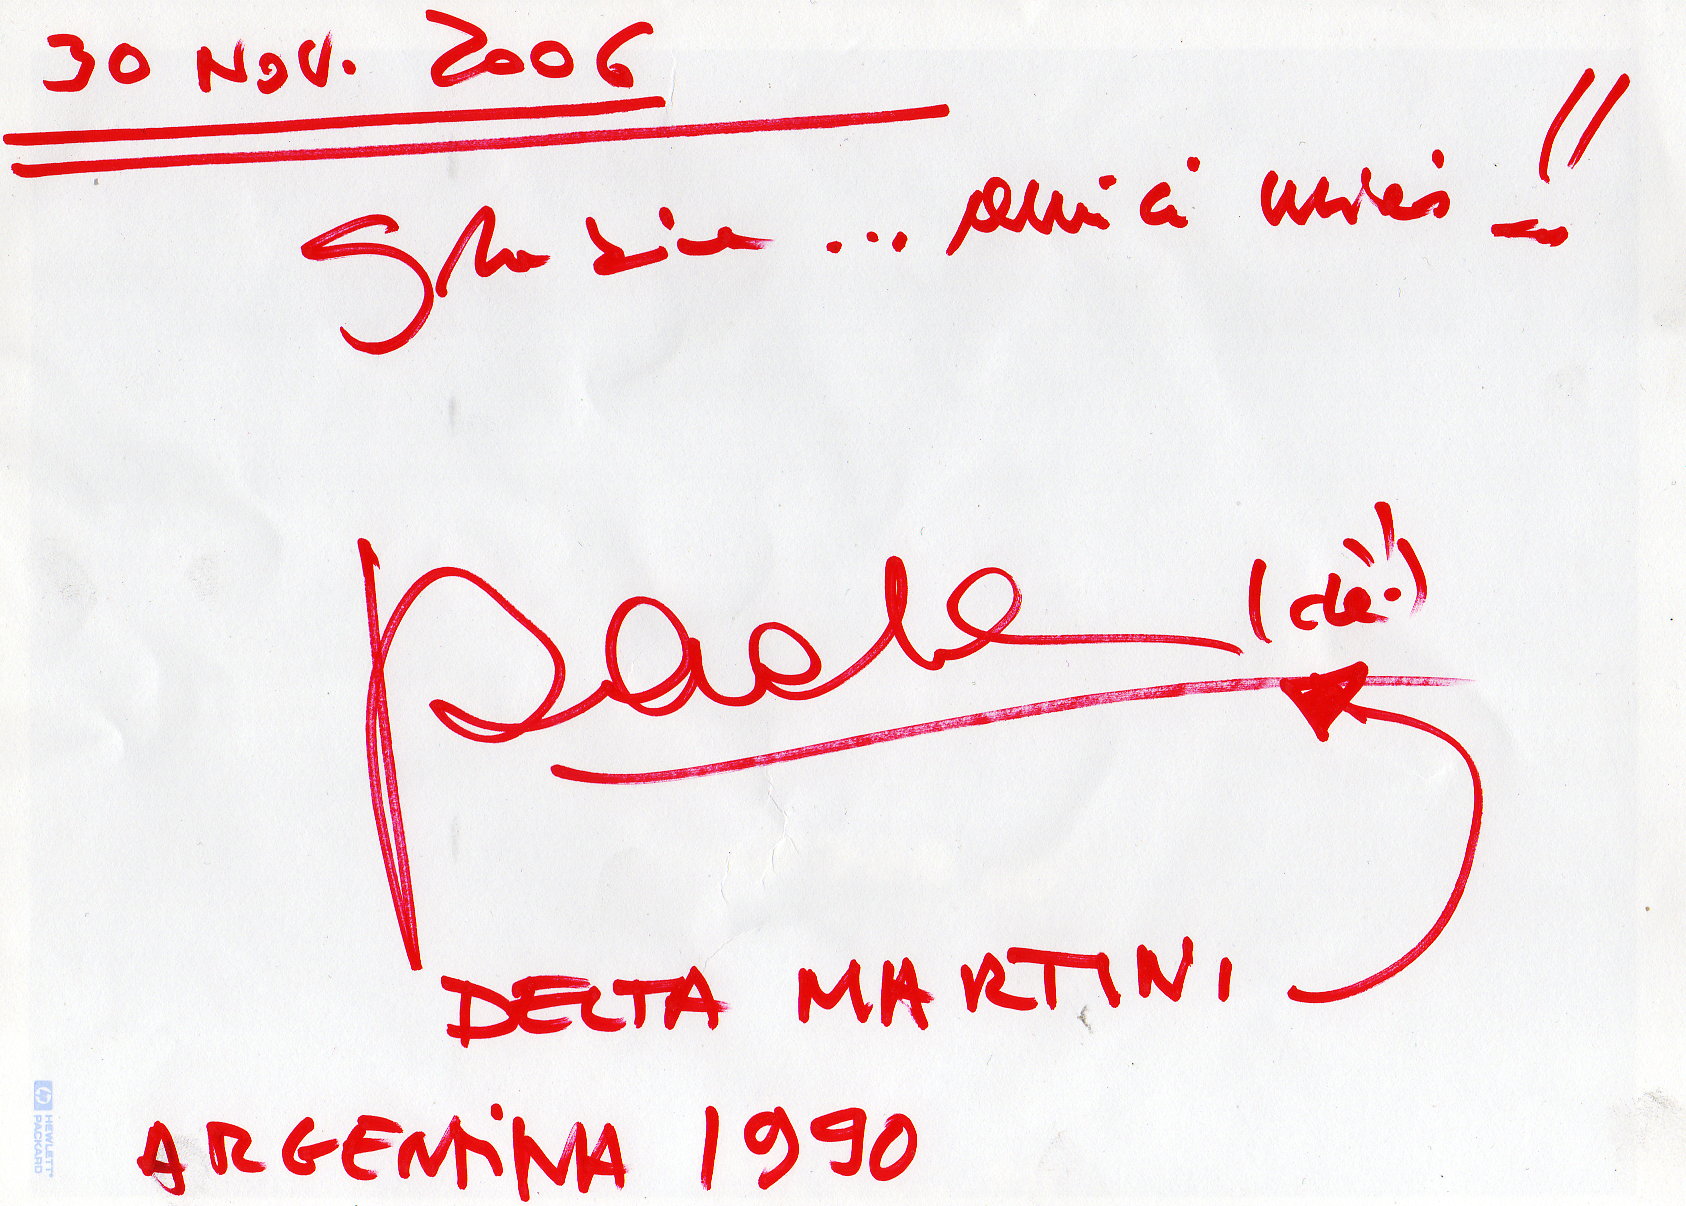 30 NOV. 2006
Grazie ... amici miei !!
Paola (dè!)
DELTA MARTINI
ARGENTINA 1990
HEWLETT®
PACKARD